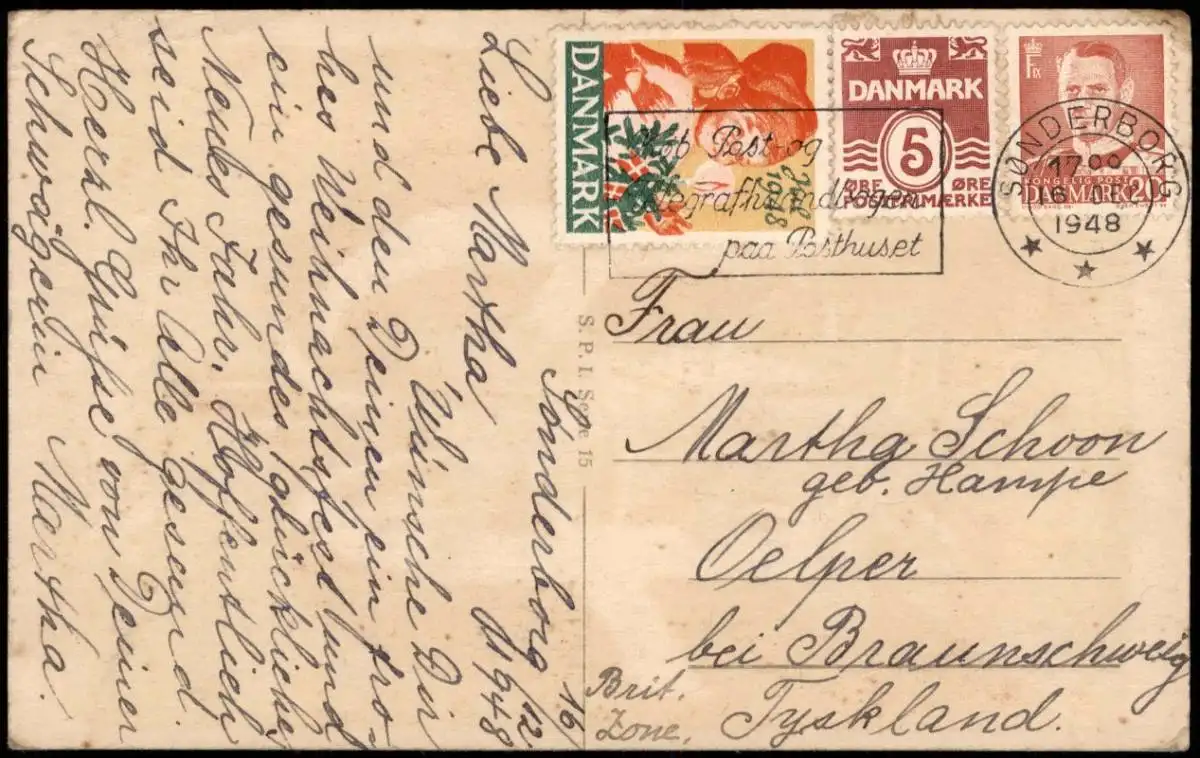 Sönderborg 16/12 1948
Liebe Martha
Wünsche Dir
und den Deinen ein fro-
hes Weihnachtsfest und
ein gesundes glückliches
Neues Jahr. Hoffentlich
seid Ihr Alle gesund.
Herzl. Grüße von Deiner
Schwägerin Martha.
DANMARK
Jul
1948
DANMARK
5
ØRE ØRE
POSTFRIMÆRKE
F IX
KONGELIG POST
DANMARK 20
Køb Post- og
Telegrafhaandbogen
paa Posthuset
SØNDERBORG
16 DEC
1948
S. P. I. Serie 15
Frau
Martha Schoon
geb. Hampe
Oelper
bei Braunschweig
Tyskland.
Brit.
Zone.